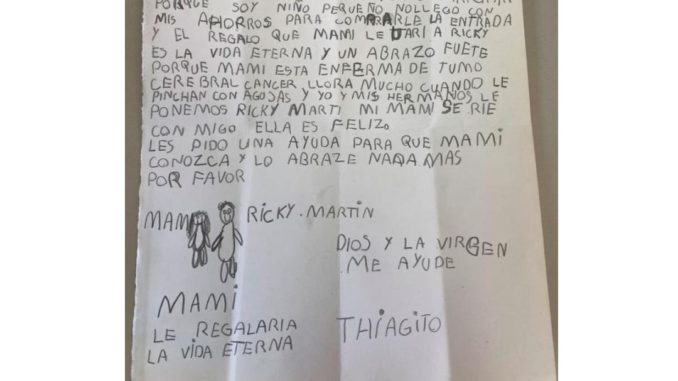 PORQUE SOY NIÑO PEQUEÑO NOLLEGO CON
MIS AHORROS PARA COMPRARLE LA ENTRADA
Y EL REGALO QUE MAMI LE DARI A RICKY
ES LA VIDA ETERNA Y UN ABRAZO FUETE
PORQUE MAMI ESTA ENFERMA DE TUMO
CEREBRAL CANCER LLORA MUCHO CUANDO LE
PINCHAN CON AGOJAS Y YO Y MIS HERMANOS LE
PONEMOS RICKY MARTI MI MAMI SE RIE
CON MIGO ELLA ES FELIZO
LES PIDO UNA AYUDA PARA QUE MAMI
CONOZCA Y LO ABRAZE NADA MAS
POR FAVOR
MAMI RICKY.MARTIN
DIOS Y LA VIRGEN
ME AYUDE
MAMI
LE REGALARIA
LA VIDA ETERNA
THIAGITO